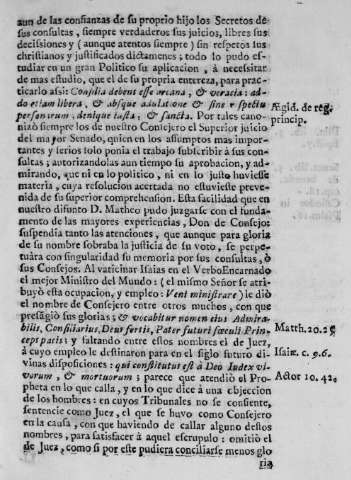 aun de las confianzas de su proprio hijo los Secretos de
sus consultas, siempre verdaderos sus juicios, libres sus
decissiones y (aunque atentos siempre) sin respetos sus
christianos y justificados dictamenes; todo lo pudo es-
tudiar en un gran Politico su aplicacion, à necessitar
de mas estudio, que el de su propria entereza, para prac-
ticarlo assi: Consilia debent esse arcana, & veracia: ad-
do etiam libera, & absque adulatione & sine respectu
personarum, denique casta, & sancta. Por tales cano-
nizaò siempre los de nuestro Consejero el Superior juicio
del mayor Senado, quien en los assumptos mas impor-
tantes y serios solo ponia el trabajo subscribir à sus con-
sultas; autorizandolas aun tiempo su aprobacion, y ad-
mirando, que ni en lo politico, ni en lo justo huviesse
materia, cuya resolucion acertada no estuvieste preve-
nida de su superior comprehension. Esta facilidad que en
nuestro difunto D. Matheo pudo juzgarse con el funda-
mento de las mayores experiencias, Don de Consejo:
suspendia tanto las atenciones, que aunque para gloria
de su nombre sobraba la justicia de su voto, se perpe-
tuára con singularidad su memoria por sus consultas, ò
sus Consejos. Al vaticinar Isaias en el Verbo Encarnado
el mejor Ministro del Mundo: (el mismo Señor se atri-
buyó esta ocupacion, y empleo: Veni ministrare) le diò
el nombre de Consejero entre otros muchos, con que
presagiò sus glorias; & vocabitur nomen eius Admira-
bilis, Consiliarius, Deus fortis, Pater futuri sæculi Prin-
ceps pacis: y faltando entre estos nombres el de Juez,
à cuyo empleo le destinaron para en el siglo futuro di-
vinas disposiciones: qui constitutus est à Deo Iudex vi-
vorum, & mortuorum; parece que atendiò el Pro-
pheta en lo que calla, y en lo que dice à una objeccion
de los hombres: en cuyos Tribunales no se consiente,
sentencie como Juez, el que se huvo como Consejero
en la causa, con que haviendo de callar alguno destos
nombres, para satisfacer à aquel escrupulo: omitiò el
de Juez, como si por este pudiera conciliarse menos glo
Ægid. de reg.
princip.
Matth. 20. 28
Isaiæ. c. 9. 6.
Actor 10. 42.